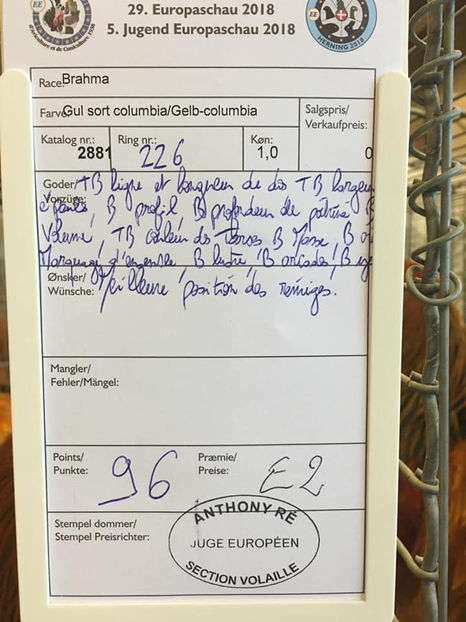 29. Europaschau 2018
5. Jugend Europaschau 2018
EE
EE
HERNING 2018
Race: Brahma
Farve: Gul sort columbia/Gelb-columbia
Salgspris/
Verkaufpreis:
0
Katalog nr.:
2881
Ring nr.:
226
Køn:
1,0
Goder/
Vorzüge:
TB ligne et longueur de dos TB largeur
B profil, B profondeur de poitrine B
Volume, TB couleur des Tarses B Masse, B
Marquage d'ensemble B lustre, B
Ønsker/
Wünsche:
Meilleure position des rémiges.
Mangler/
Fehler/Mängel:
Points/
Punkte:
96
Præmie/
Preise:
E2
Stempel dommer/
Stempel Preisrichter:
ANTHONY RÉ
JUGE EUROPÉEN
SECTION VOLAILLE